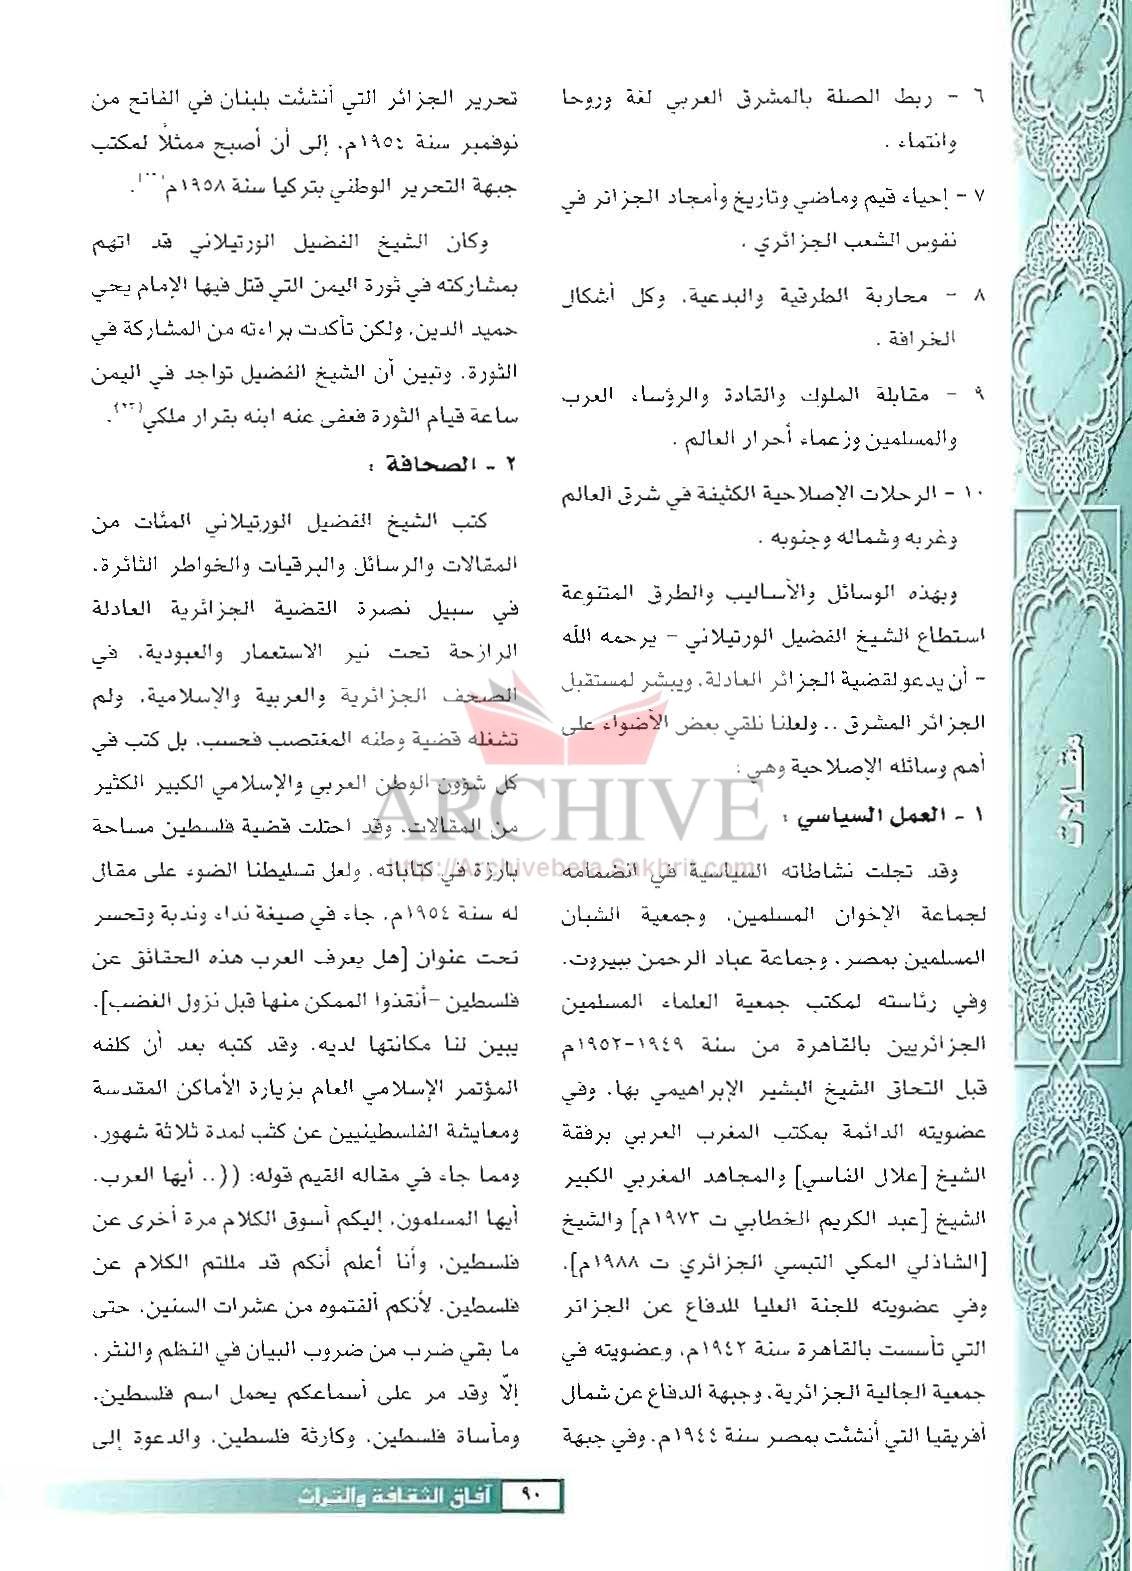 ٦ - ربط الصلة بالمشرق العربي لغة وروحا
وانتماء .
٧ - إحياء قيم وماضي وتاريخ وأمجاد الجزائر في
نفوس الشعب الجزائري .
٨ - محاربة الطرقية والبدعية، وكل أشكال
الخرافة .
٩ - مقابلة الملوك والقادة والرؤساء العرب
والمسلمين وزعماء أحرار العالم .
١٠ - الرحلات الإصلاحية الكثيفة في شرق العالم
وغربه وشماله وجنوبه .
وبهذه الوسائل والأساليب والطرق المتنوعة
استطاع الشيخ الفضيل الورتيلاني - يرحمه الله
- أن يدعو لقضية الجزائر العادلة، ويبشر لمستقبل
الجزائر المشرق .. ولعلنا نلقي بعض الأضواء على
أهم وسائله الإصلاحية وهي :
١ - العمل السياسي :
وقد تجلت نشاطاته السياسية في انضمامه
لجماعة الإخوان المسلمين، وجمعية الشبان
المسلمين بمصر، وجماعة عباد الرحمن ببيروت،
وفي رئاسته لمكتب جمعية العلماء المسلمين
الجزائريين بالقاهرة من سنة ١٩٤٩-١٩٥٢م
قبل التحاق الشيخ البشير الإبراهيمي بها، وفي
عضويته الدائمة بمكتب المغرب العربي برفقة
الشيخ [علال الفاسي] والمجاهد المغربي الكبير
الشيخ [عبد الكريم الخطابي ت ١٩٧٣م] والشيخ
[الشاذلي المكي التبسي الجزائري ت ١٩٨٨م]،
وفي عضويته للجنة العليا للدفاع عن الجزائر
التي تأسست بالقاهرة سنة ١٩٤٢م، وعضويته في
جمعية الجالية الجزائرية، وجبهة الدفاع عن شمال
أفريقيا التي أنشئت بمصر سنة ١٩٤٤م، وفي جبهة
تحرير الجزائر التي أنشئت بلبنان في الفاتح من
نوفمبر سنة ١٩٥٤م، إلى أن أصبح ممثلاً لمكتب
جبهة التحرير الوطني بتركيا سنة ١٩٥٨م.
وكان الشيخ الفضيل الورتيلاني قد اتهم
بمشاركته في ثورة اليمن التي قتل فيها الإمام يحي
حميد الدين، ولكن تأكدت براءته من المشاركة في
الثورة، وتبين أن الشيخ الفضيل تواجد في اليمن
ساعة قيام الثورة فعفى عنه ابنه بقرار ملكي.
٢ - الصحافة :
كتب الشيخ الفضيل الورتيلاني المئات من
المقالات والرسائل والبرقيات والخواطر الثائرة،
في سبيل نصرة القضية الجزائرية العادلة
الرازحة تحت نير الاستعمار والعبودية، في
الصحف الجزائرية والعربية والإسلامية، ولم
تشغله قضية وطنه المغتصب فحسب، بل كتب في
كل شؤون الوطن العربي والإسلامي الكبير الكثير
من المقالات، وقد احتلت قضية فلسطين مساحة
بارزة في كتاباته، ولعل تسليطنا الضوء على مقال
له سنة ١٩٥٤م، جاء في صيغة نداء وندبة وتحسر
تحت عنوان [هل يعرف العرب هذه الحقائق عن
فلسطين -أنقذوا الممكن منها قبل نزول الغضب]،
يبين لنا مكانتها لديه، وقد كتبه بعد أن كلفه
المؤتمر الإسلامي العام بزيارة الأماكن المقدسة
ومعايشة الفلسطينيين عن كثب لمدة ثلاثة شهور،
ومما جاء في مقاله القيم قوله: ((.. أيها العرب،
أيها المسلمون، إليكم أسوق الكلام مرة أخرى عن
فلسطين، وأنا أعلم أنكم قد مللتم الكلام عن
فلسطين، لأنكم ألفتموه من عشرات السنين، حتى
ما بقي ضرب من ضروب البيان في النظم والنثر،
إلّا وقد مر على أسماعكم يحمل اسم فلسطين،
ومأساة فلسطين، وكارثة فلسطين، والدعوة إلى
مقالات
ARCHIVE
http://Archivebeta.Sakhrit.com
٩٠ آفاق الثقافة والتراث